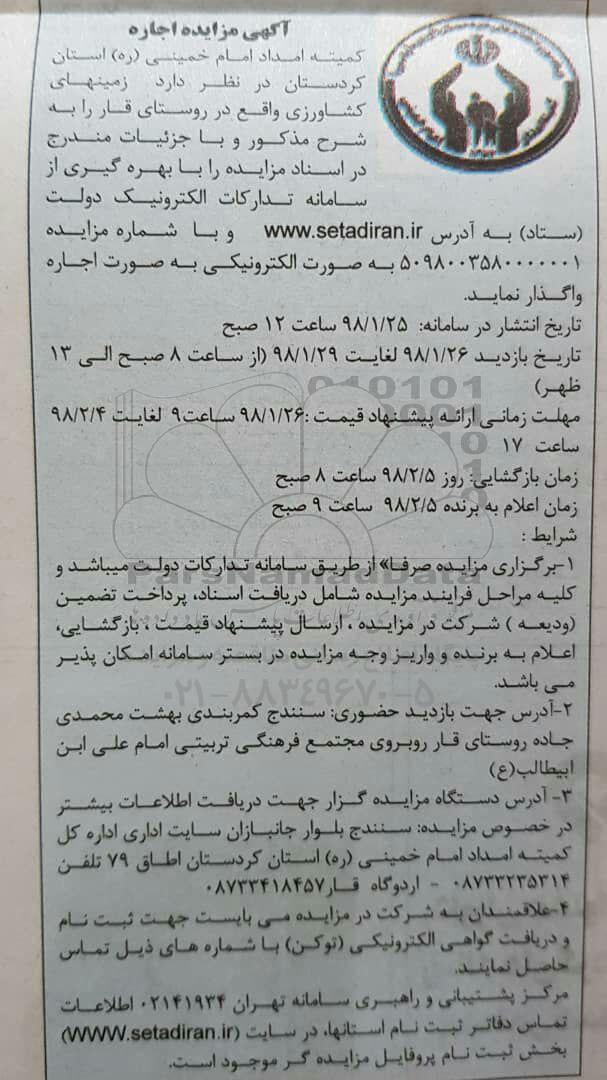 آگهی مزایده اجاره
کمیته امداد امام خمینی (ره) استان
کردستان در نظر دارد زمینهای
کشاورزی واقع در روستای قار را به
شرح مذکور و با جزئیات مندرج
در اسناد مزایده را با بهره گیری از
سامانه تدارکات الکترونیک دولت
(ستاد) به آدرس www.setadiran.ir و با شماره مزایده
۵۰۹۸۰۰۳۵۸۰۰۰۰۰۰۱ به صورت الکترونیکی به صورت اجاره
واگذار نماید.
تاریخ انتشار در سامانه: ۹۸/۱/۲۵ ساعت ۱۲ صبح
تاریخ بازدید ۹۸/۱/۲۶ لغایت ۹۸/۱/۲۹ (از ساعت ۸ صبح الی ۱۳
ظهر)
مهلت زمانی ارائه پیشنهاد قیمت :۹۸/۱/۲۶ ساعت۹ لغایت ۹۸/۲/۴
ساعت ۱۷
زمان بازگشایی: روز ۹۸/۲/۵ ساعت ۸ صبح
زمان اعلام به برنده ۹۸/۲/۵ ساعت ۹ صبح
شرایط :
۱-برگزاری مزایده صرفا» از طریق سامانه تدارکات دولت میباشد و
کلیه مراحل فرایند مزایده شامل دریافت اسناد، پرداخت تضمین
(ودیعه ) شرکت در مزایده ، ارسال پیشنهاد قیمت ، بازگشایی،
اعلام به برنده و واریز وجه مزایده در بستر سامانه امکان پذیر
می باشد.
۲-آدرس جهت بازدید حضوری: سنندج کمربندی بهشت محمدی
جاده روستای قار روبروی مجتمع فرهنگی تربیتی امام علی ابن
ابیطالب(ع)
۳- آدرس دستگاه مزایده گزار جهت دریافت اطلاعات بیشتر
در خصوص مزایده: سنندج بلوار جانبازان سایت اداری اداره کل
کمیته امداد امام خمینی (ره) استان کردستان اطاق ۷۹ تلفن
۰۸۷۳۳۲۳۵۳۱۴ - اردوگاه قار۰۸۷۳۳۴۱۸۴۵۷
۴-علاقمندان به شرکت در مزایده می بایست جهت ثبت نام
و دریافت گواهی الکترونیکی (توکن) با شماره های ذیل تماس
حاصل نمایند.
مرکز پشتیبانی و راهبری سامانه تهران ۰۲۱۴۱۹۳۴ اطلاعات
تماس دفاتر ثبت نام استانها، در سایت (WWW.setadiran.ir)
بخش ثبت نام پروفایل مزایده گر موجود است.
ParsNamadData
۰۲۱-۸۸۳۴۹۶۷۰-۵